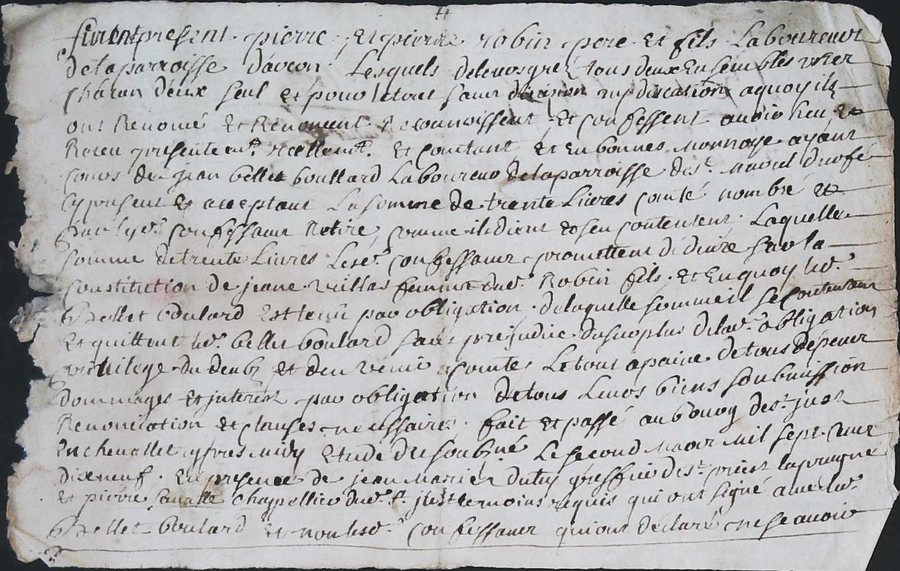 furent present pierre et pierre robin pere et fils Laboureurs
de la parroisse d' Lesquels de leurs gré tous deux ensembles
chacun deux seul et pour le tout sans division ny discution a quoy ils
ont Renoncé et Renoncent Reconnoissent et confessent avoir heu et
Receu presentemt. reellemt. et contant et en bonnes monnoye ayant
cours de jean bellet boullard Laboureur de la parroisse de st.
cy present et acceptant La somme de trente Livres comté nombré et
par lesd. confessant Retiré comme ils dient et sen contentent Laquelle
somme de trente Livres lesd. confessant promettent dediuire sur la
constitution de jeane femme dud. Robin fils et En quoy led.
Bellet boulard est tenu par obligation de laquelle somme ils se contentent
Et quittent led. bellet boulard sans prejudice du surplus de lad. obligation
privilege du deub et den venir a comte Le tout a paine de tous despens
Dommages et interest par obligation de tous Leurs biens soubmission
Renonciation et clauses necessaires fait et passé au bourg de st. just
En chevallet apres midy Etude du soubné Le second mil sept cent
dixneuf En presence de jean greffier de st. priest laprugne
Et pierre chappellier dud. st. just temoins requis qui ont signé avec led.
Bellet boulard et non lesd. confessant qui ont declaré ne scavoir